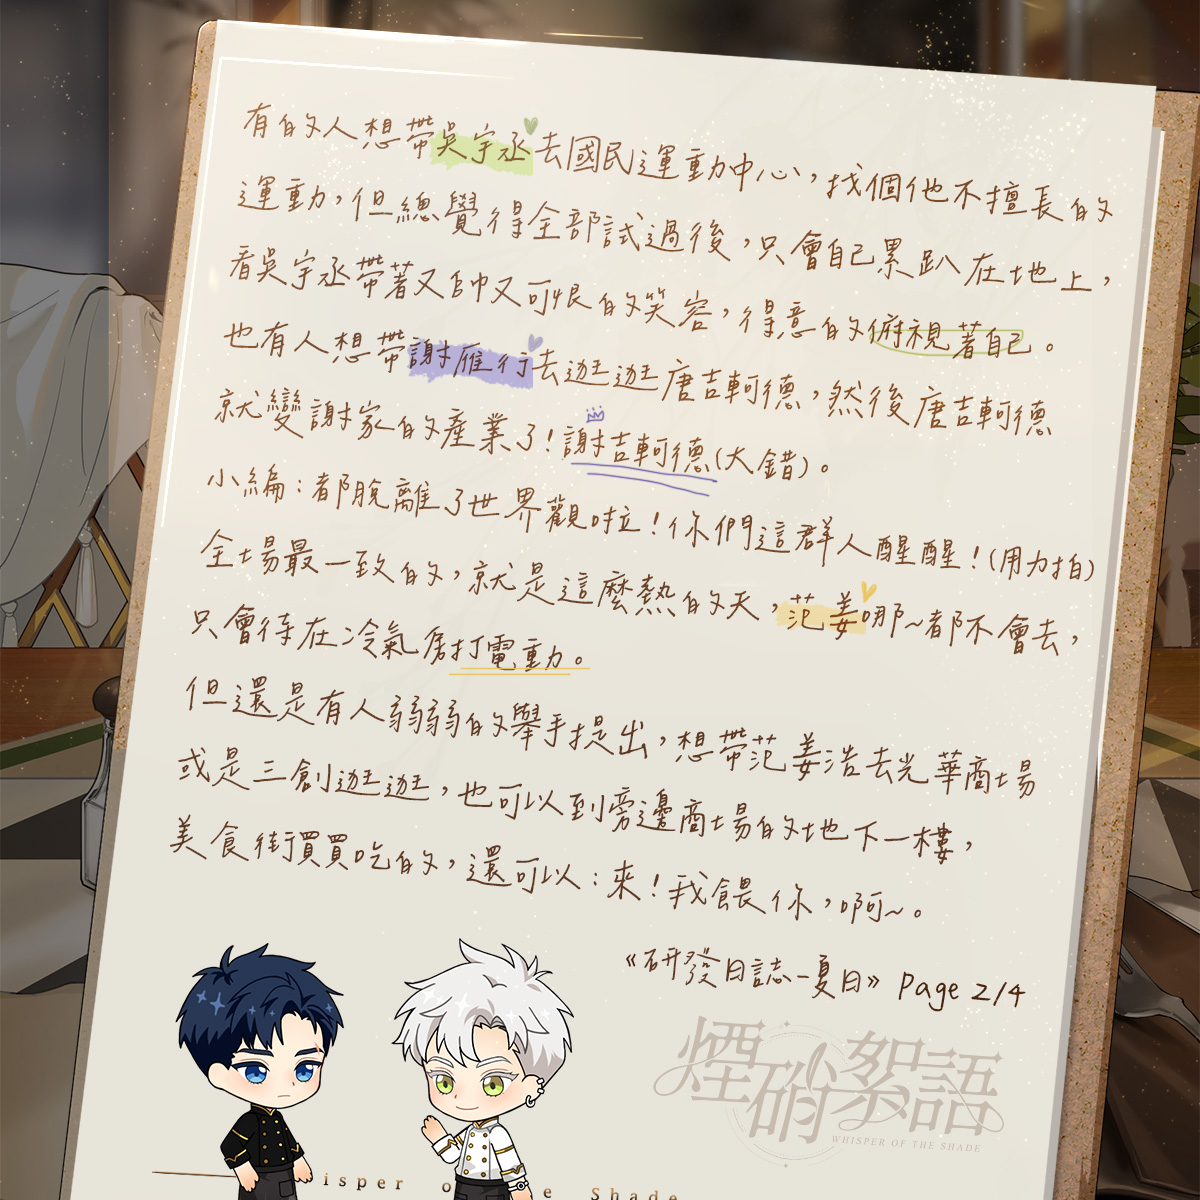 有的人想帶吳宇丞去國民運動中心，找個他不擅長的
運動，但總覺得全部試過後，只會自己累趴在地上，
看吳宇丞帶著又帥又可恨的笑容，得意的俯視著自己。
也有人想帶謝雁行去逛逛唐吉軻德，然後唐吉軻德
就變謝家的產業了！謝吉軻德(大錯)。
小編：都脫離了世界觀啦！你們這群人醒醒！(用力拍)
全場最一致的，就是這麼熱的天，范姜哪~都不會去，
只會待在冷氣房打電動。
但還是有人弱弱的舉手提出，想帶范姜浩去光華商場
或是三創逛逛，也可以到旁邊商場的地下一樓，
美食街買買吃的，還可以：來！我餵你，啊~。
《研發日誌－夏日》 Page 2/4
煙硝絮語
WHISPER OF THE SHADE
isper o e Shade